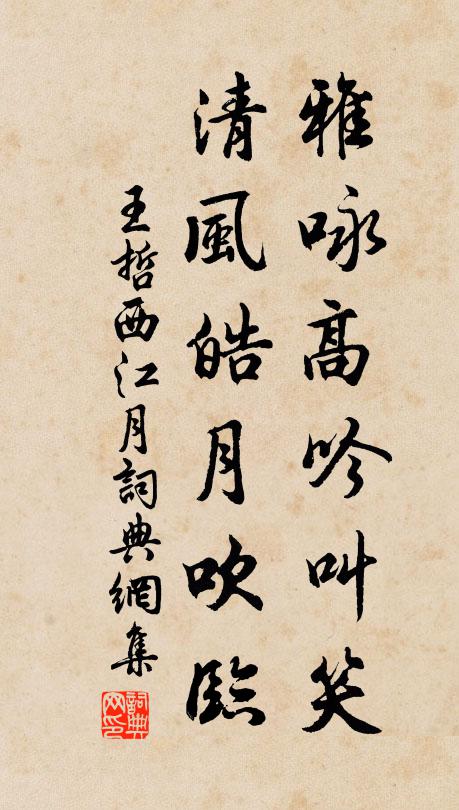 雅咏高吟叫笑
清風皓月吹臨
王哲西江月詞典網集
詞典网印